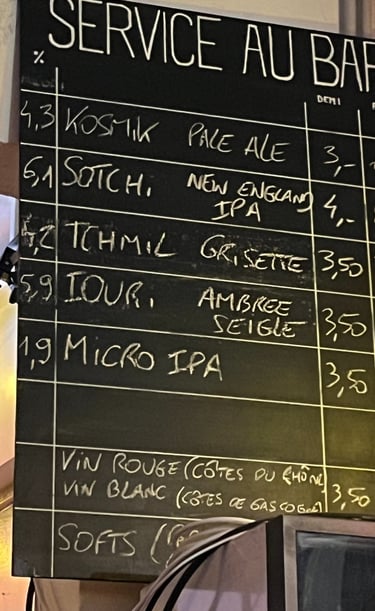 SERVICE AU BAR
%
DEMI
4,3 KOSMIK PALE ALE 3,-
6,1 SOTCHI NEW ENGLAND IPA 4,-
4,2 TCHMIL GRISETTE 3,50
5,9 IOURI AMBREE SEIGLE 3,50
1,9 MICRO IPA 3,50
VIN ROUGE (CÔTES DU RHÔNE
VIN BLANC (CÔTES DE GASCOGNE) 3,50
SOFTS (